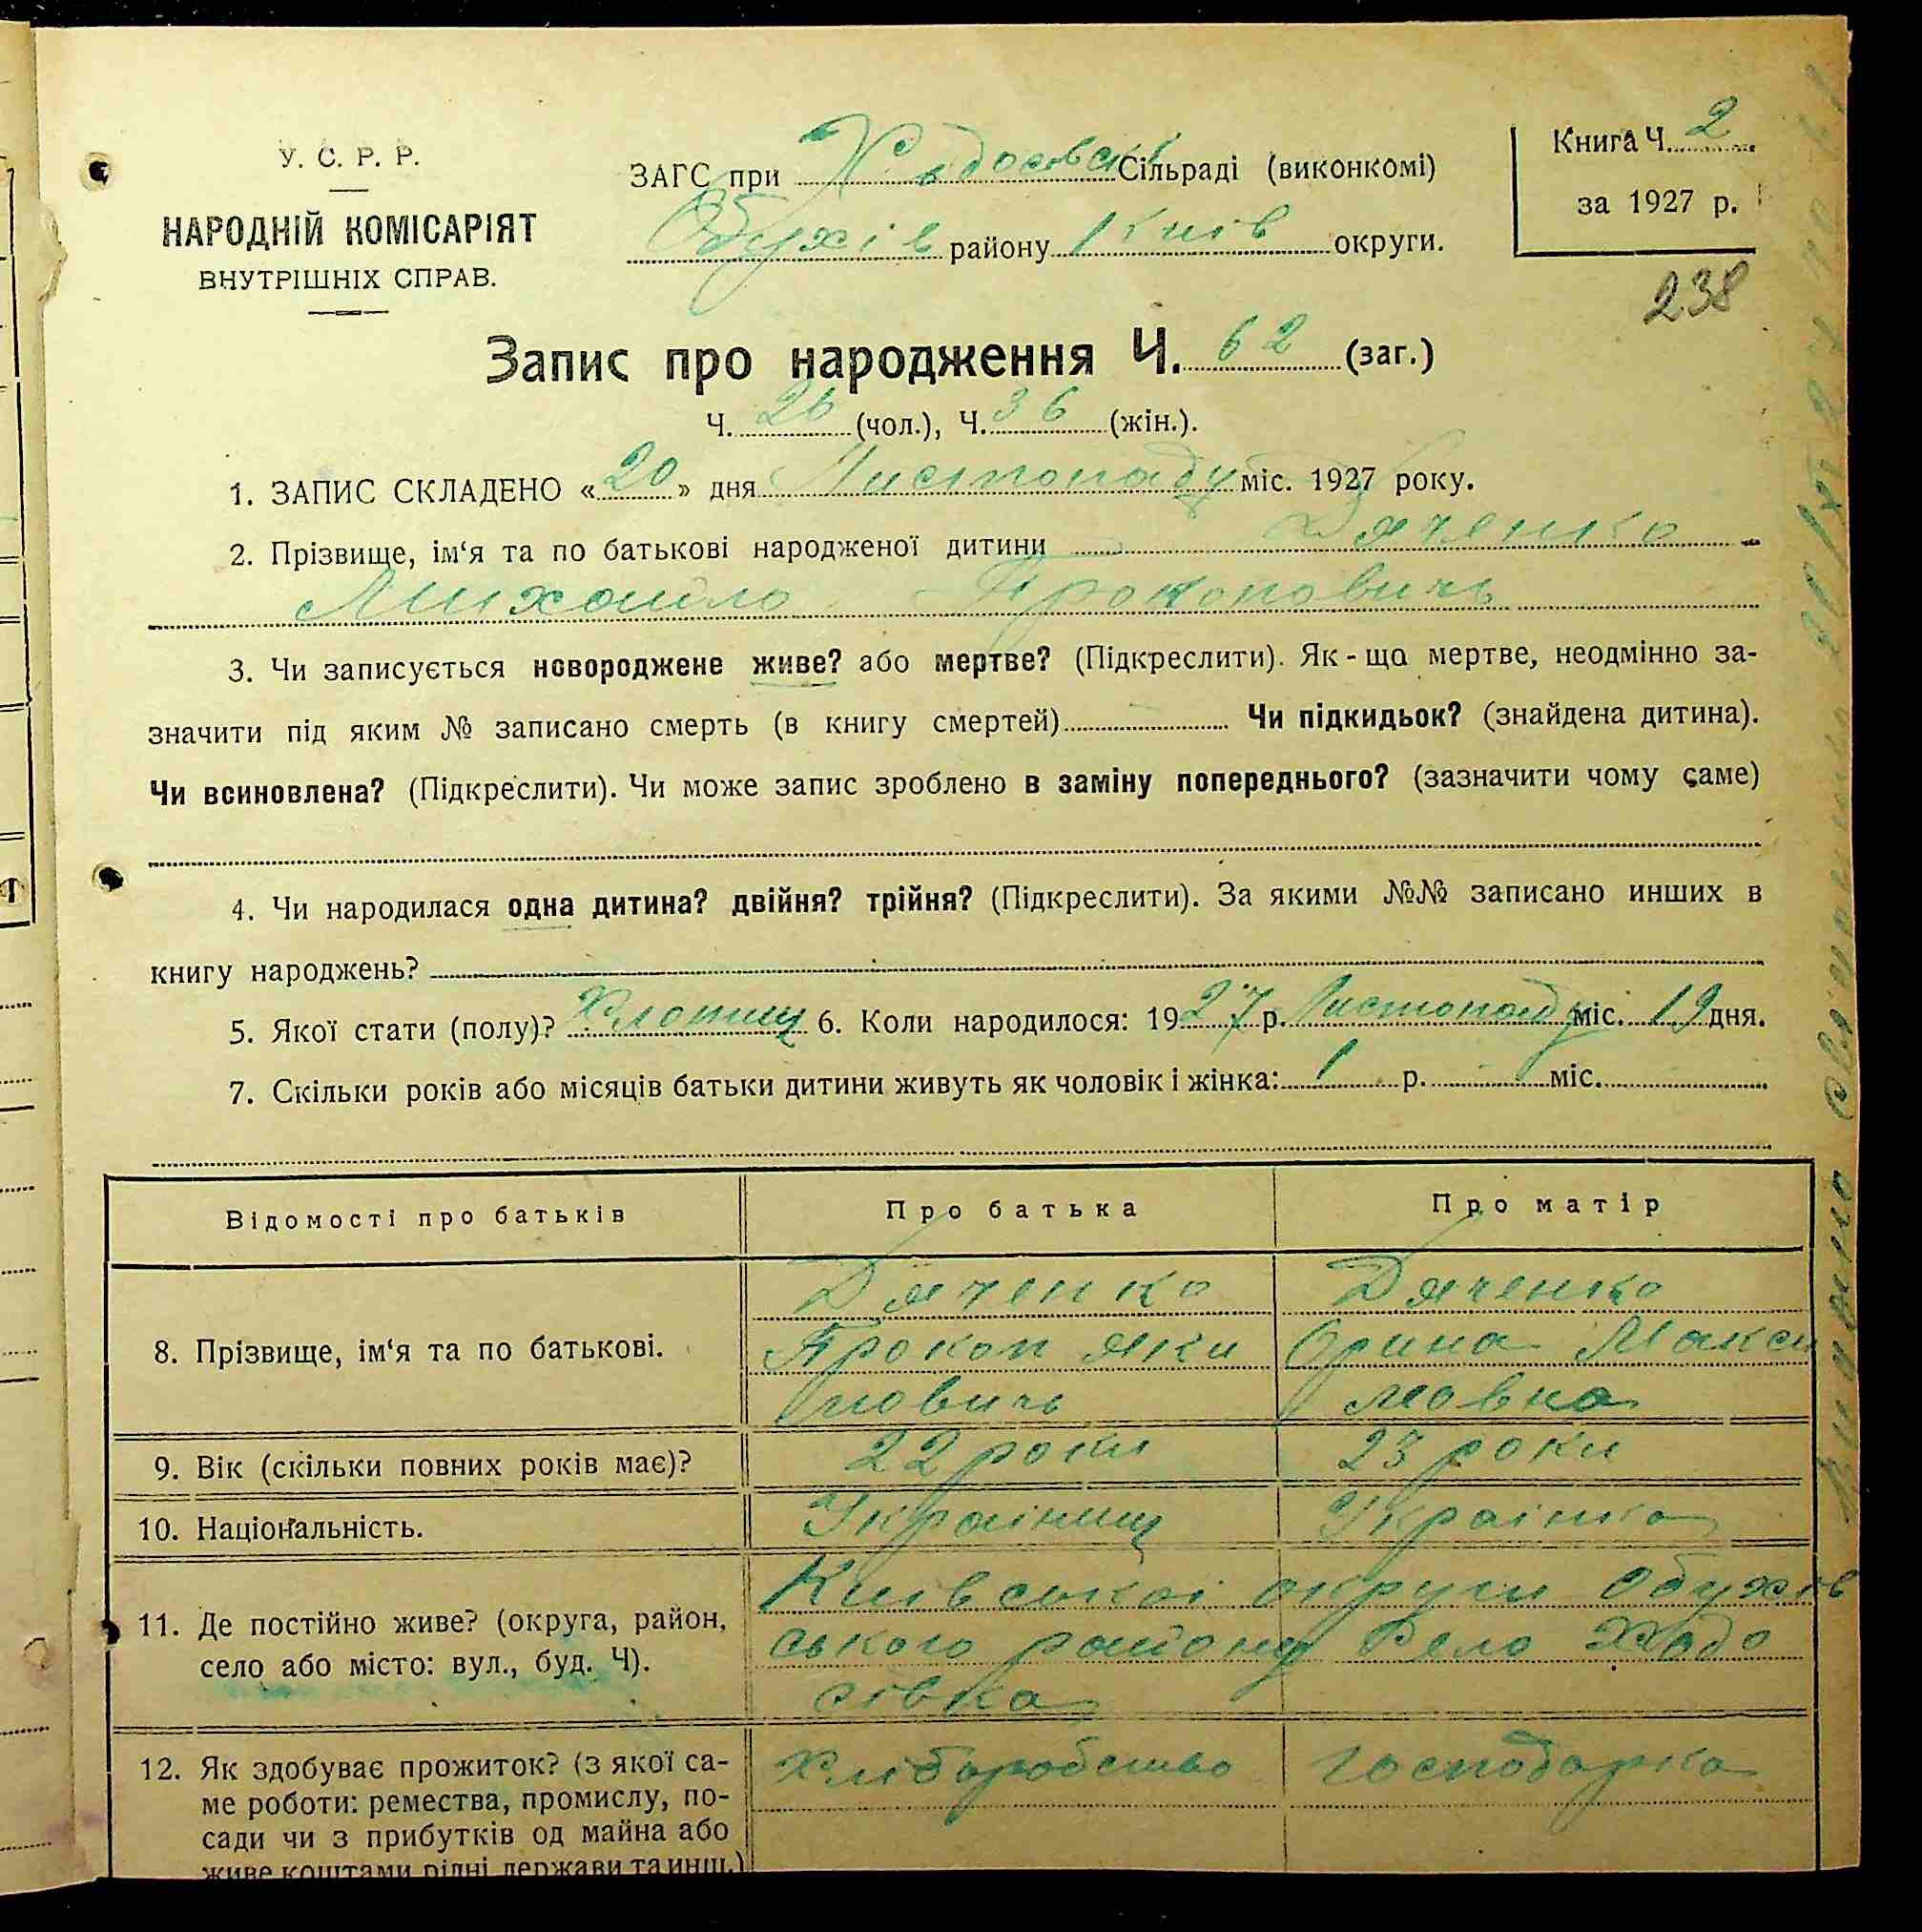 У. С. Р. Р.
НАРОДНІЙ КОМІСАРІЯТ
ВНУТРІШНІХ СПРАВ.
ЗАГС при Хадосовск Сільраді (виконкомі)
Обухів району Київ округи.
Книга Ч. 2
за 1927 р.
238
Запис про народження Ч. 62 (заг.)
Ч. 26 (чол.), Ч. 36 (жін.).
1. ЗАПИС СКЛАДЕНО «20» дня Листопаду міс. 1927 року.
2. Прізвище, ім‘я та по батькові народженої дитини Дяченко
Михайло Прокоповичь
3. Чи записується новороджене живе? або мертве? (Підкреслити). Як-що мертве, неодмінно за-
значити під яким № записано смерть (в книгу смертей) Чи підкидьок? (знайдена дитина).
Чи всиновлена? (Підкреслити). Чи може запис зроблено в заміну попереднього? (зазначити чому саме)
4. Чи народилася одна дитина? двійня? трійня? (Підкреслити). За якими №№ записано инших в
книгу народжень?
5. Якої стати (полу)? Хлопиц 6. Коли народилося: 1927 р. Листопаду міс. 19 дня.
7. Скільки років або місяців батьки дитини живуть як чоловік і жінка: 1 р. міс.
Відомості про батьків Про батька Про матір
8. Прізвище, ім‘я та по батькові.
Дяченко Дяченко
Прокоп Яки Орина Макси
мовичь мовна
9. Вік (скільки повних років має)? 22 роки 23 роки
10. Національність. Україниц Українка
11. Де постійно живе? (округа, район,
село або місто: вул., буд. Ч).
Київської округи Обухів
ського району Село Хадо
сівка
12. Як здобуває прожиток? (з якої са-
ме роботи: ремества, промислу, по-
сади чи з прибутків од майна або
живе коштами рідні держави та инш.)
Хліборобство Господарка